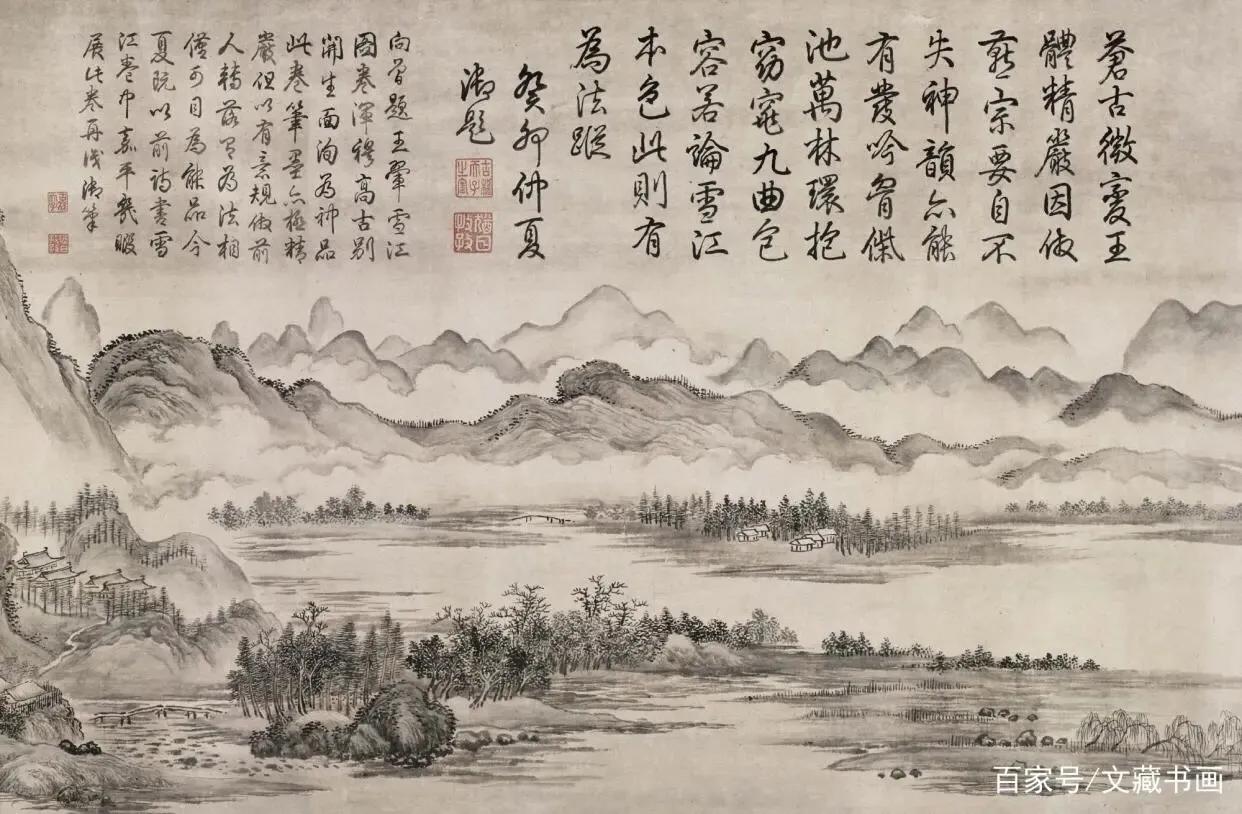 蒼古微變王
體精嚴因倣
燕宗要自不
失神韻亦能
有發吟胷傑
池萬林環抱
窈窕九曲包
容若論雪江
本色此則有
為法蹤
癸卯仲夏
御題
古稀天子之寶
猶日孜孜
向曾題王翬雪江
圖卷渾穆高古別
開生面洵為神品
此卷筆墨亦極精
嚴但以有意規倣前
人轉落有為法相
僅可目為能品今
夏既以前詩書雪
江卷中嘉平幾暇
展此卷再識御筆
百家号/文藏书画